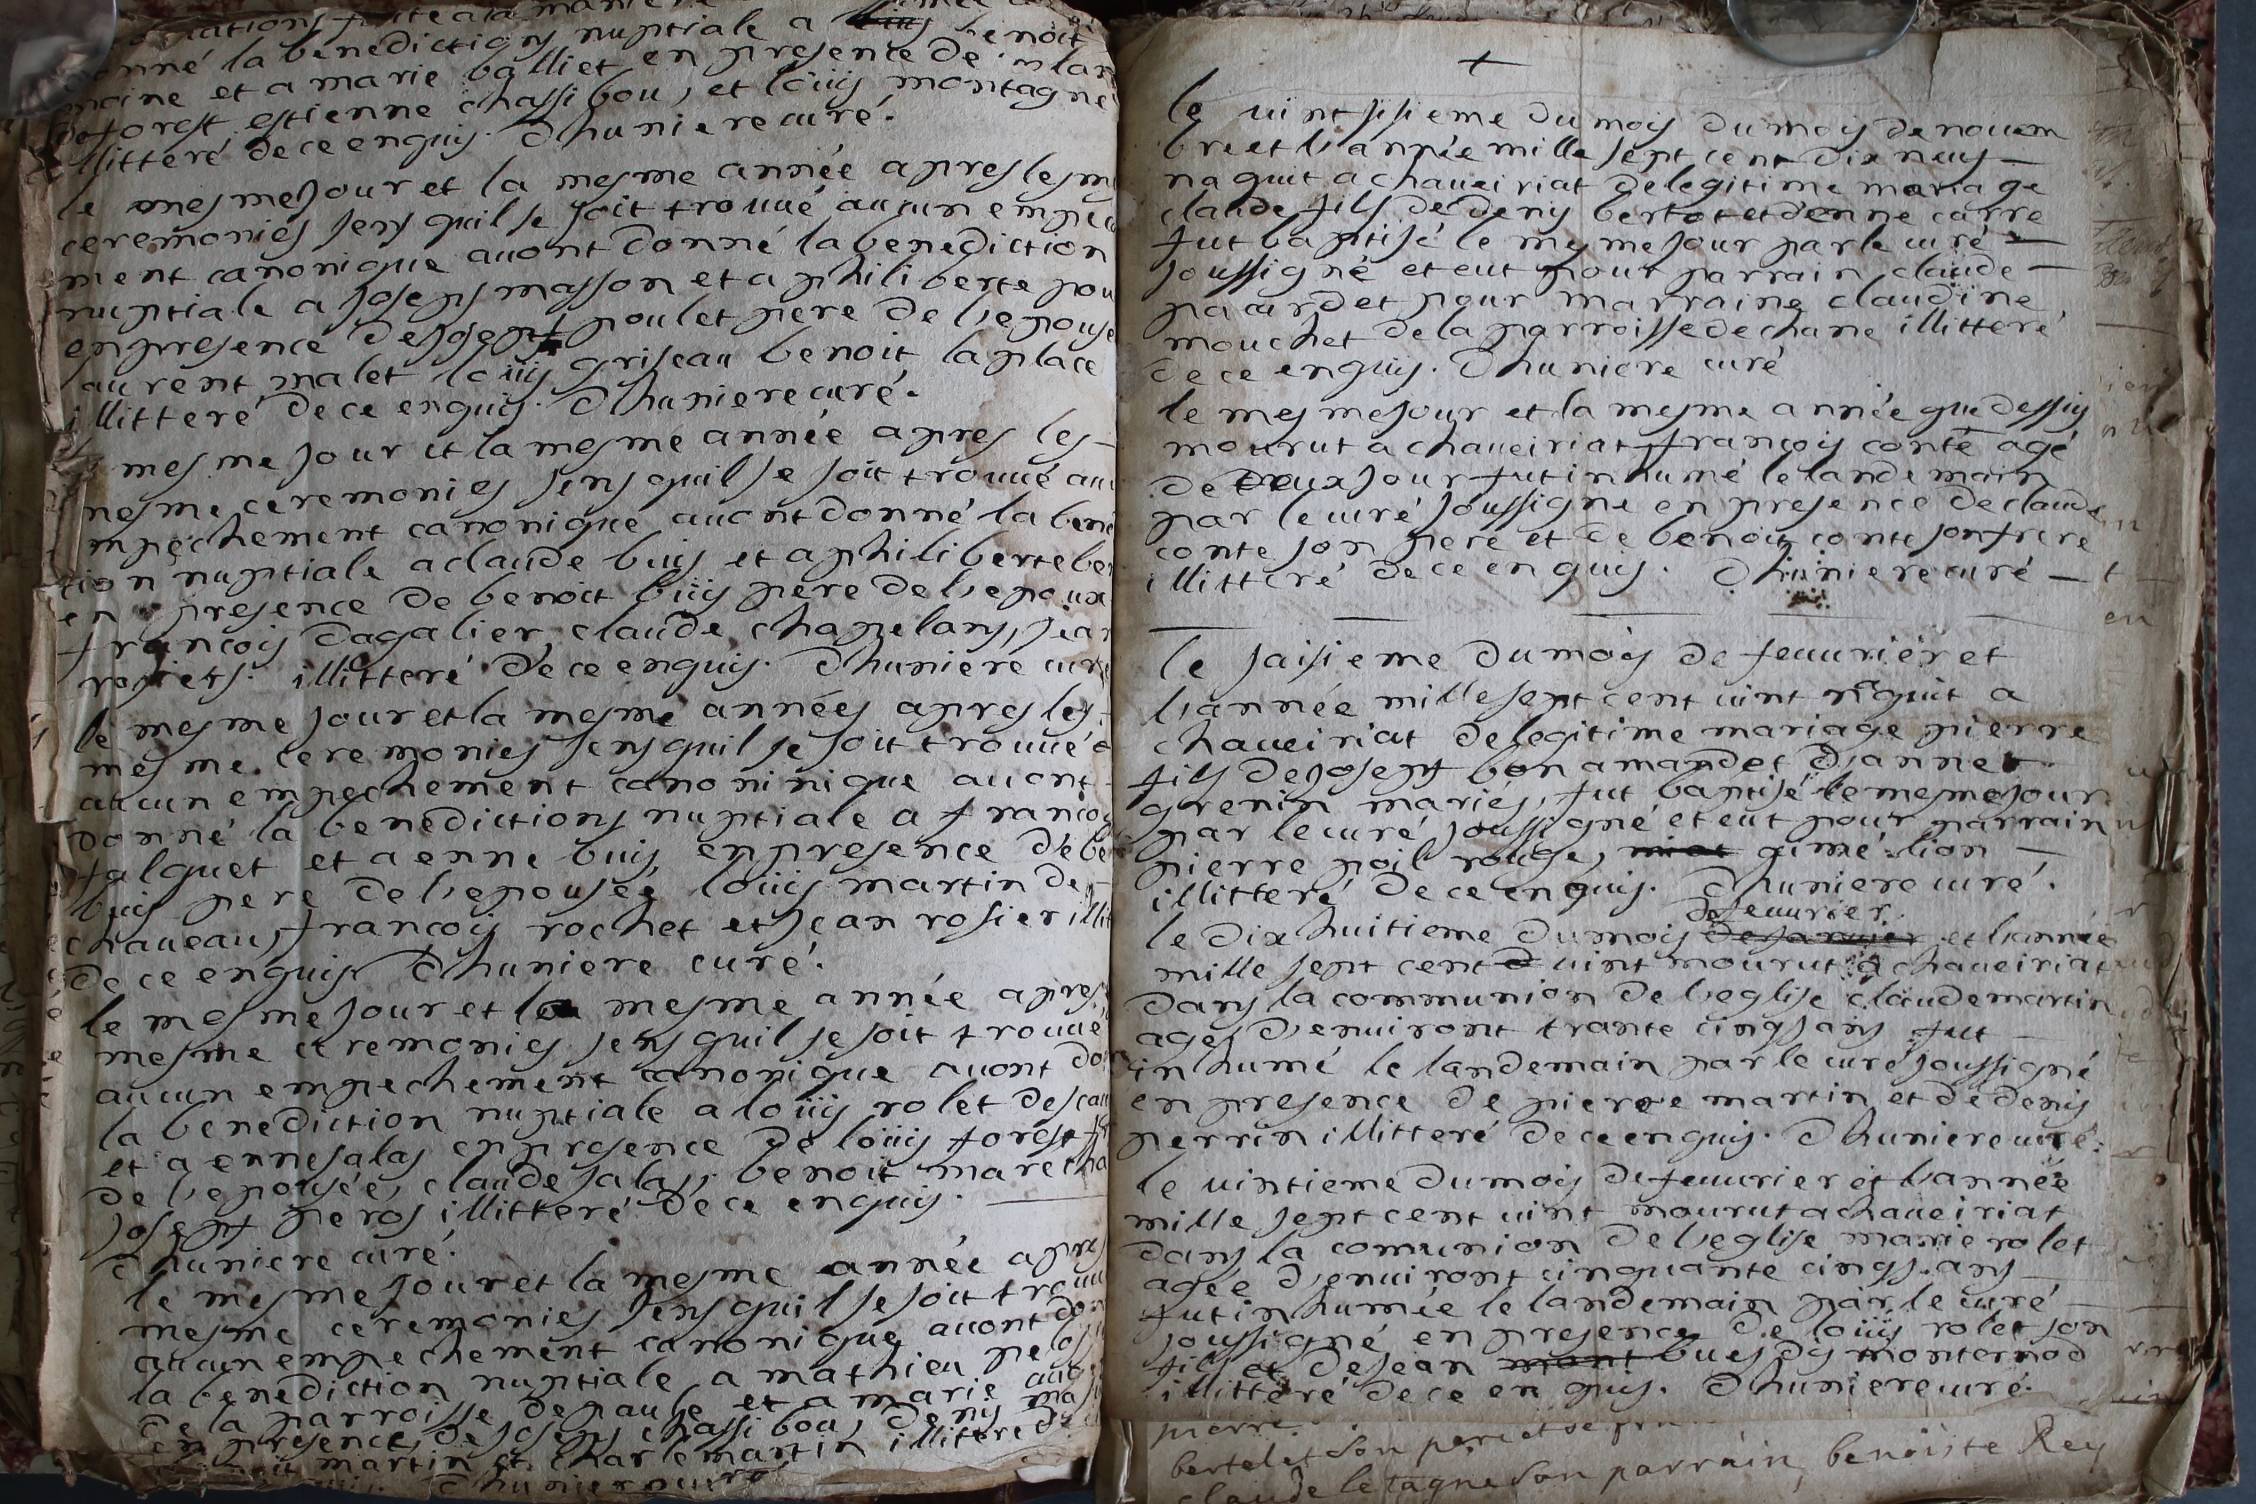 donné la benediction nuptiale a benoit
moine et a marie balliet en presence de
forest estienne chassibou, et loüis montagne
illitteré de ce enquis. Dhuniere curé.
le mesme jour et la mesme année apres les
ceremonies sens quil se soit trouué aucun
ment canonique auont donné la benediction
nuptiale a joseph masson et a philiberte
en presence de joseph poulet pere de l'epouse
aurent malet loüis griseau benoit laplace
illitteré de ce enquis. Dhuniere curé.
mesme jour et la mesme année apres les
mesme ceremonies sens quil se soit trouué
mpechement canonique auont donné la
tion nuptiale a claude buis et a philiberte
en presence de benoit büis pere de l'epoux
francois dagalier, claude chapelans,
rosiers. illitteré de ce enquis. Dhuniere curé
le mesme jour et la mesme années apres les
mesme ceremonies sens quil se soit trouué
aucun empechement canoninique auont
donné la benedictions nuptiale a
falquet et a enne buis, en presence de
buis pere de l'epousée loüis martin de
chaueau, francois rochet et jean rosier
de ce enquis Dhuniere curé.
le mesme jour et la mesme année apres
mesme ceremonies sens quil se soit trouué
aucun empechement canonique auont
la benediction nuptiale a loüis rolet
et a enne salas en presence de loüis forest
de l'epousée, claude salas, benoit
joseph peros illitteré de ce enquis.
Dhuniere curé.
le mesme jour et la mesme année apres
mesme ceremonies sens quil se soit
aucun empechement canonique, auont
la benediction nuptiale a mathieu
de la parroisse de et a marie
en presence de joseph chassibou, denis
martin et charle martin illitteré
Dhuniere curé
+
le uintsisieme du mois du mois de nouem
bre et l'année mille sept cent dix neus
naquit a chaueiriat de legitime mariage
claude fils de denis bertot et denne carre
fut baptisé le mesme jour par le curé
soussigné et eut pour parrain claude
pacard et pour marraine claudine
mouchet de la parroisse de chane illitteré
de ce enquis. Dhuniere curé
le mesme jour et la mesme année que dessus
mourut a chaueiriat francois conte agé
de deux jour fut inhumé le landemain
par le curé soussigne en presence de claude
conte son pere et de benoit conte son frere
illitteré de ce enquis. Dhuniere curé
le saisieme du mois de feuurier et
l'année mille sept cent uint naquit a
chaueiriat de legitime mariage pierre
fils de joseph bon amandet d'anne
grenin mariés, fut baptisé le mesme jour
par le curé soussigné et eut pour parrain
pierre poil rouge,
illitteré de ce enquis. Dhuniere curé.
de feuurier
le dix huitieme du mois de januier et l'année
mille sept cent uint mourut a chaueiriat
dans la communion de l'eglise claude martin
agé, d'enuiront trante cinqs ans fut
inhumé le landemain par le curé soussigné
en presence de pierre martin et de denis
perrin illitteré de ce enquis. Dhuniere curé.
le uintieme du mois de feuurier et l'année
mille sept cent uint mourut a chaueiriat
dans la comunion de l'eglise marie rolet
agée d'enuiront cinquante cinqs ans
fut inhumée le landemain par le curé
soussigné en presence de loüis rolet son
fils et de jean mont bues dis monternod
illitteré de ce en quis. Dhuniere curé.
pierre
bertelet son pere et de
claude letagne son parrain, benoiste Rey